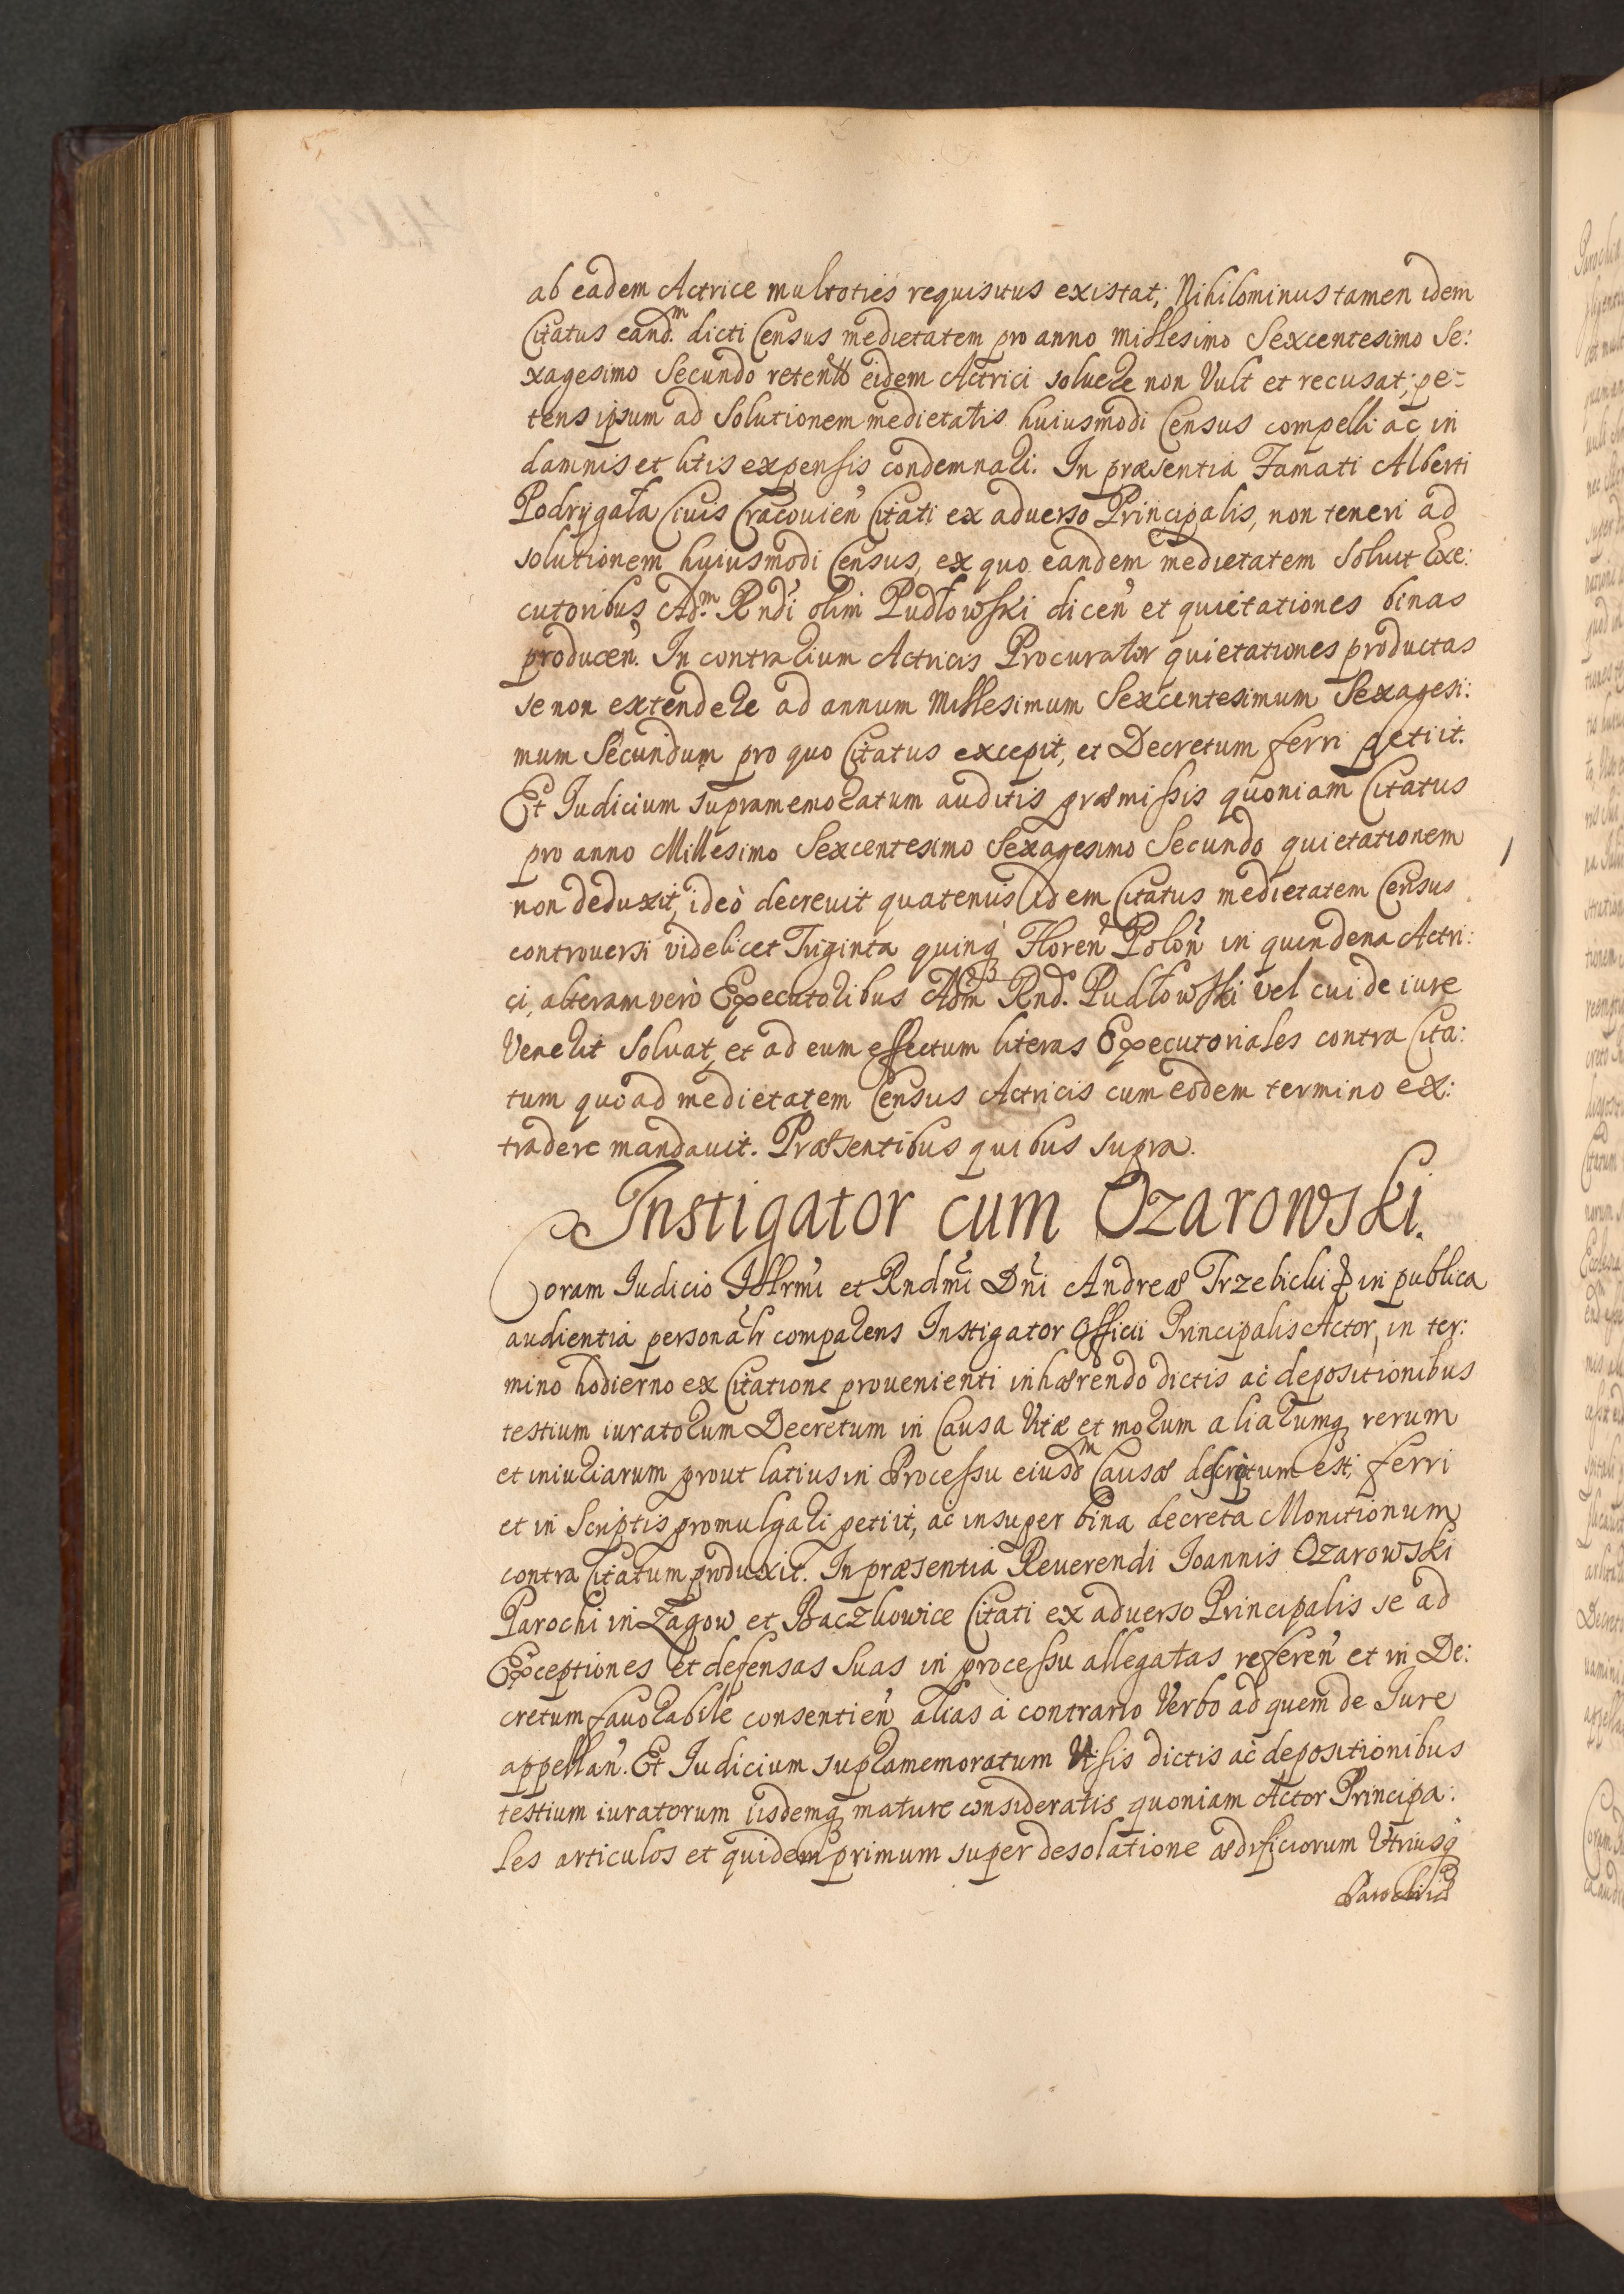 ab eadem Actrice multoties requisitus existat; Nihilominus tamen idem
Citatus eandm. dicti Census medietatem pro anno millesimo Sexcentesimo Se:
xagesimo Secundo retento eidem Actrici soluere non Vult et recusat; pe:
tens ipsum ad Solutionem medietatis huiusmodi Census compelli ac in
damnis et litis expensis condemnari. In præsentia Famati Alberti
Podrygała Ciuis Cracouien Citati ex aduerso Principalis, non teneri ad
solutionem huiusmodi Census, ex quo eandem medietatem soluit Exe:
cutoribus Adm. Rndi olim Pudłowski dicen et quietationes binas
producen. In contrarium Actricis Procurator quietationes productas
se non extendere ad annum Millesimum Sexcentesimum Sexagesi:
mum Secundum pro quo Citatus excepit, et Decretum ferri petiit.
Et Iudicium supramemoratum auditis præmissis quoniam Citatus
pro anno Millesimo Sexcentesimo Sexagesimo Secundo quietationem
non deduxit, ideò decreuit quatenus idem Citatus medietatem Census
controuersi videlicet Triginta quinq Floren Polon in quindena Actri:
ci, alteram verò Executoribus Adm Rnd. Pudłowski vel cui de iure
Venerit Soluat, et ad eum effectum literas Executoriales contra Cita:
tum quoad medietatem Census Actricis cum eodem termino ex:
tradere mandauit. Præsentibus quibus supra.
Instigator cum Ozarowski.
Coram Iudicio Illrmi et Rndmi Dni Andreæ Trzebicki &c in publica
audientia personalr comparens Instigator Officii Principalis Actor, in ter:
mino hodierno ex Citatione prouenienti inhærendo dictis ac depositionibus
testium iuratorum Decretum in Causa Vitæ et morum aliarumq rerum
et iniuriarum prout latius in Processu eiusdm Causæ descriptum est, ferri
et in Scriptis promulgari petiit, ac insuper bina decreta Monitionum
contra Citatum produxit. In præsentia Reuerendi Ioannis Ozarowski
Parochi in Zagow et Baczkowice Citati ex aduerso Principalis se ad
Exceptiones et defensas suas in processu allegatas referen et in De:
cretum fauorabile consentien alias à contrario Verbo ad quem de Iure
appellan. Et Iudicium supramemoratum Visis dictis ac depositionibus
testium iuratorum iisdemq mature consideratis quoniam Actor Principa:
les articulos et quidem primum super desolatione ædificiorum Vtriusq
Parochiæ